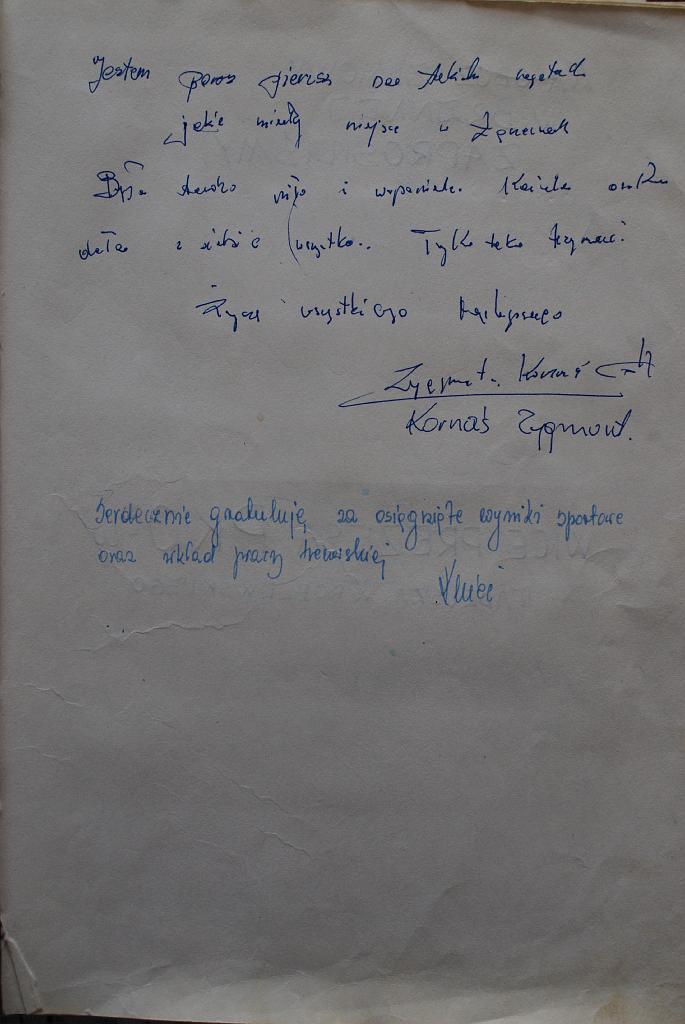 Jestem poraz pierwszy na takich regatach
jakie miały miejsce w
Było bardzo miło i wspaniale. Każda osoba
dała z siebie wszystko.. Tylko tak trzymać.
Życzę wszystkiego najlepszego
Zygmunt Kornaś
Kornaś Zygmunt.
Serdecznie gratuluję za osięgnięte wyniki sportowe
oraz wkład pracy trenerskiej